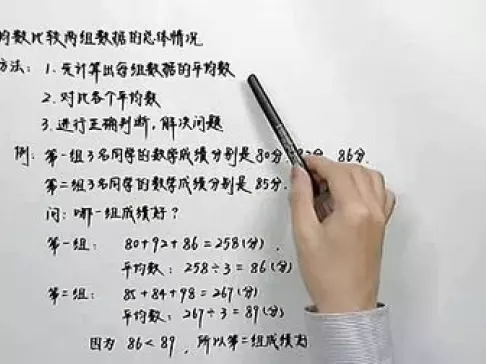 均数比较两组数据的总体情况
方法：1.先计算出每组数据的平均数
2.对比各个平均数
3.进行正确判断，解决问题
例：第一组3名同学的数学成绩分别是80分、92分、86分.
第二组3名同学的数学成绩分别是85分.
问：哪一组成绩好？
第一组：80+92+86=258(分),
平均数：258÷3=86(分)
第二组：85+84+98=267(分)
平均数：267÷3=89(分)
因为86<89，所以第二组成绩好